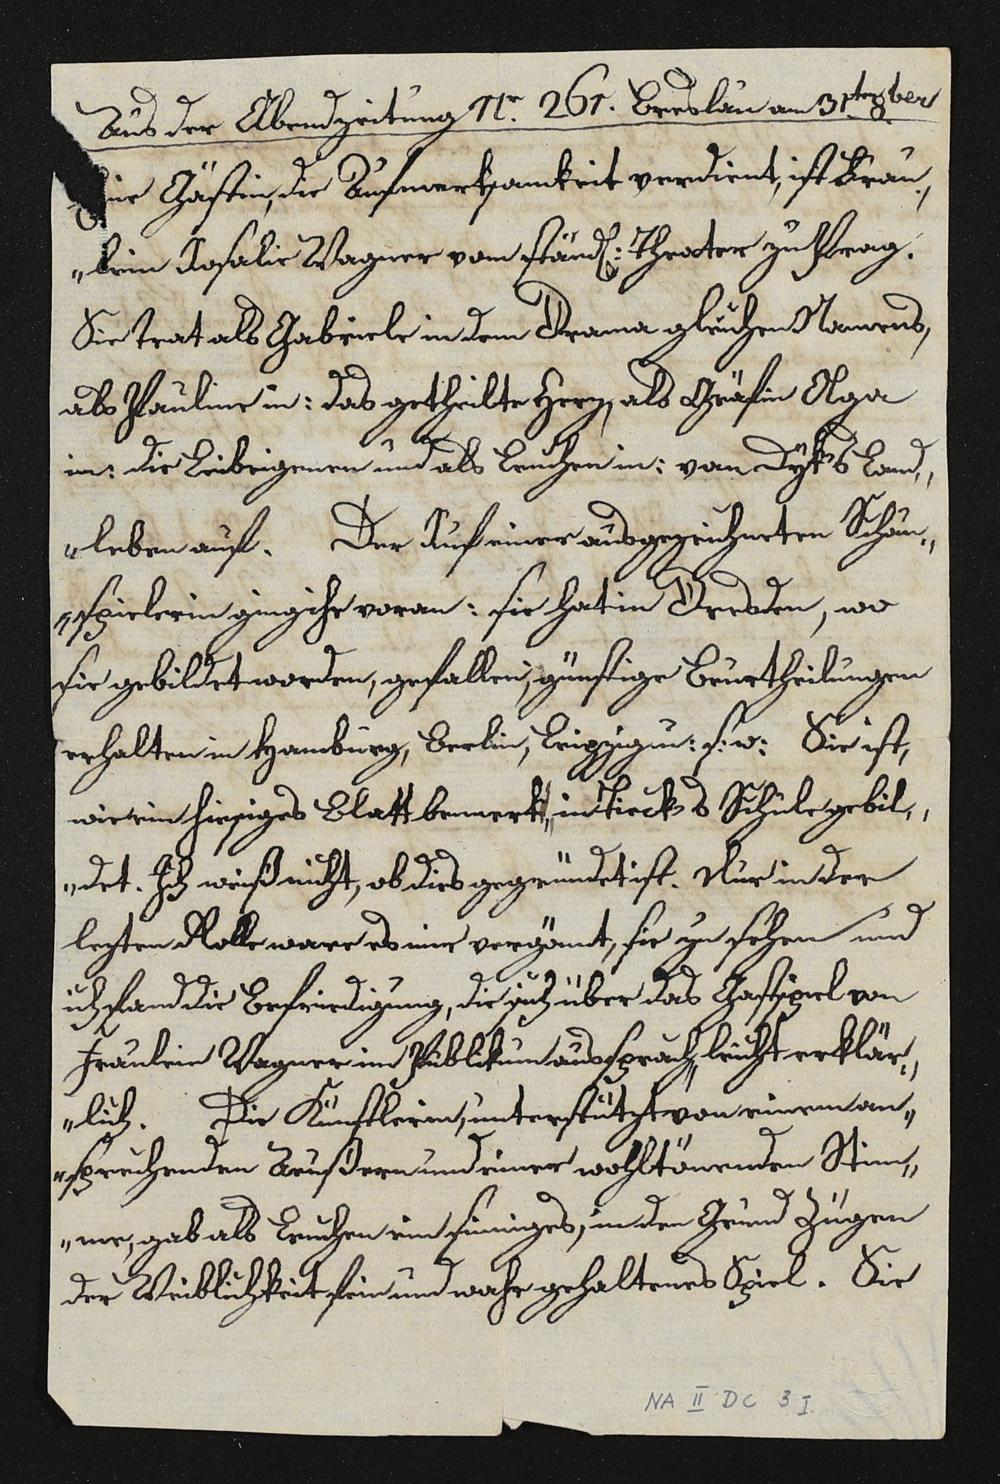 Aus der Abendzeitung Nr. 261. Breslau am 31ten 8ber
Eine Gästin, die Aufmerksamkeit verdient, ist Fräu„
„lein Rosalie Wagner vom ständ: Theater zu Prag.
Sie trat als Gabriele in dem Drama gleichen Namens,
als Pauline in: das getheilte Herz, als Gräfin Olga
in: die Leibeigenen und als Lenchen in: van Dyk's Land„
„leben auf. Der Ruf einer ausgezeichneten Schau„
„spielerin ging ihr voran: sie hat in Dresden, wo
sie gebildet worden, gefallen, günstige Beurtheilungen
erhalten in Hamburg, Berlin, Leipzig u: s: w: Sie ist,
wie ein hiesiges Blatt bemerkt, in Tieck's Schule gebil„
„det. Ich weiß nicht, ob dies gegründet ist. Nur in der
lezten Rolle ware es mir vergönnt, sie zu sehen und
ich fand die Befriedigung, die sich über das Gastspiel von
Fräulein Wagner im Publikum aussprach, leicht erklär„
„lich. Die Künstlerin, unterstützt von einem an„
„sprechenden Äußern und einer wohltönenden Stim„
„me, gab als Lenchen ein sinniges, in den Grund Zügen
der Weiblichkeit fein und wahr gehaltenes Spiel. Sie
NA II DC 3 I